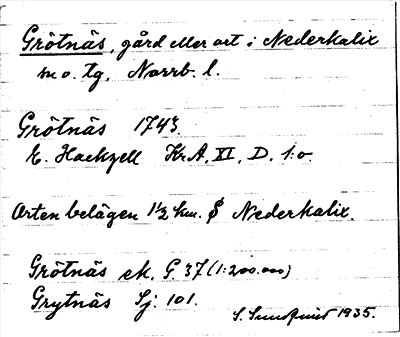 Grötnäs, gård eller ort i Nederkalix
m o. tg, Norrb. l.
Grötnäs 1743.
E. Hackzell KrA, XI, D. 1:o
Orten belägen 1½ km. S Nederkalix.
Grötnäs ek. G 37 (1:200.000)
Grytnäs Sj: 101.
S. Sundquist 1935.